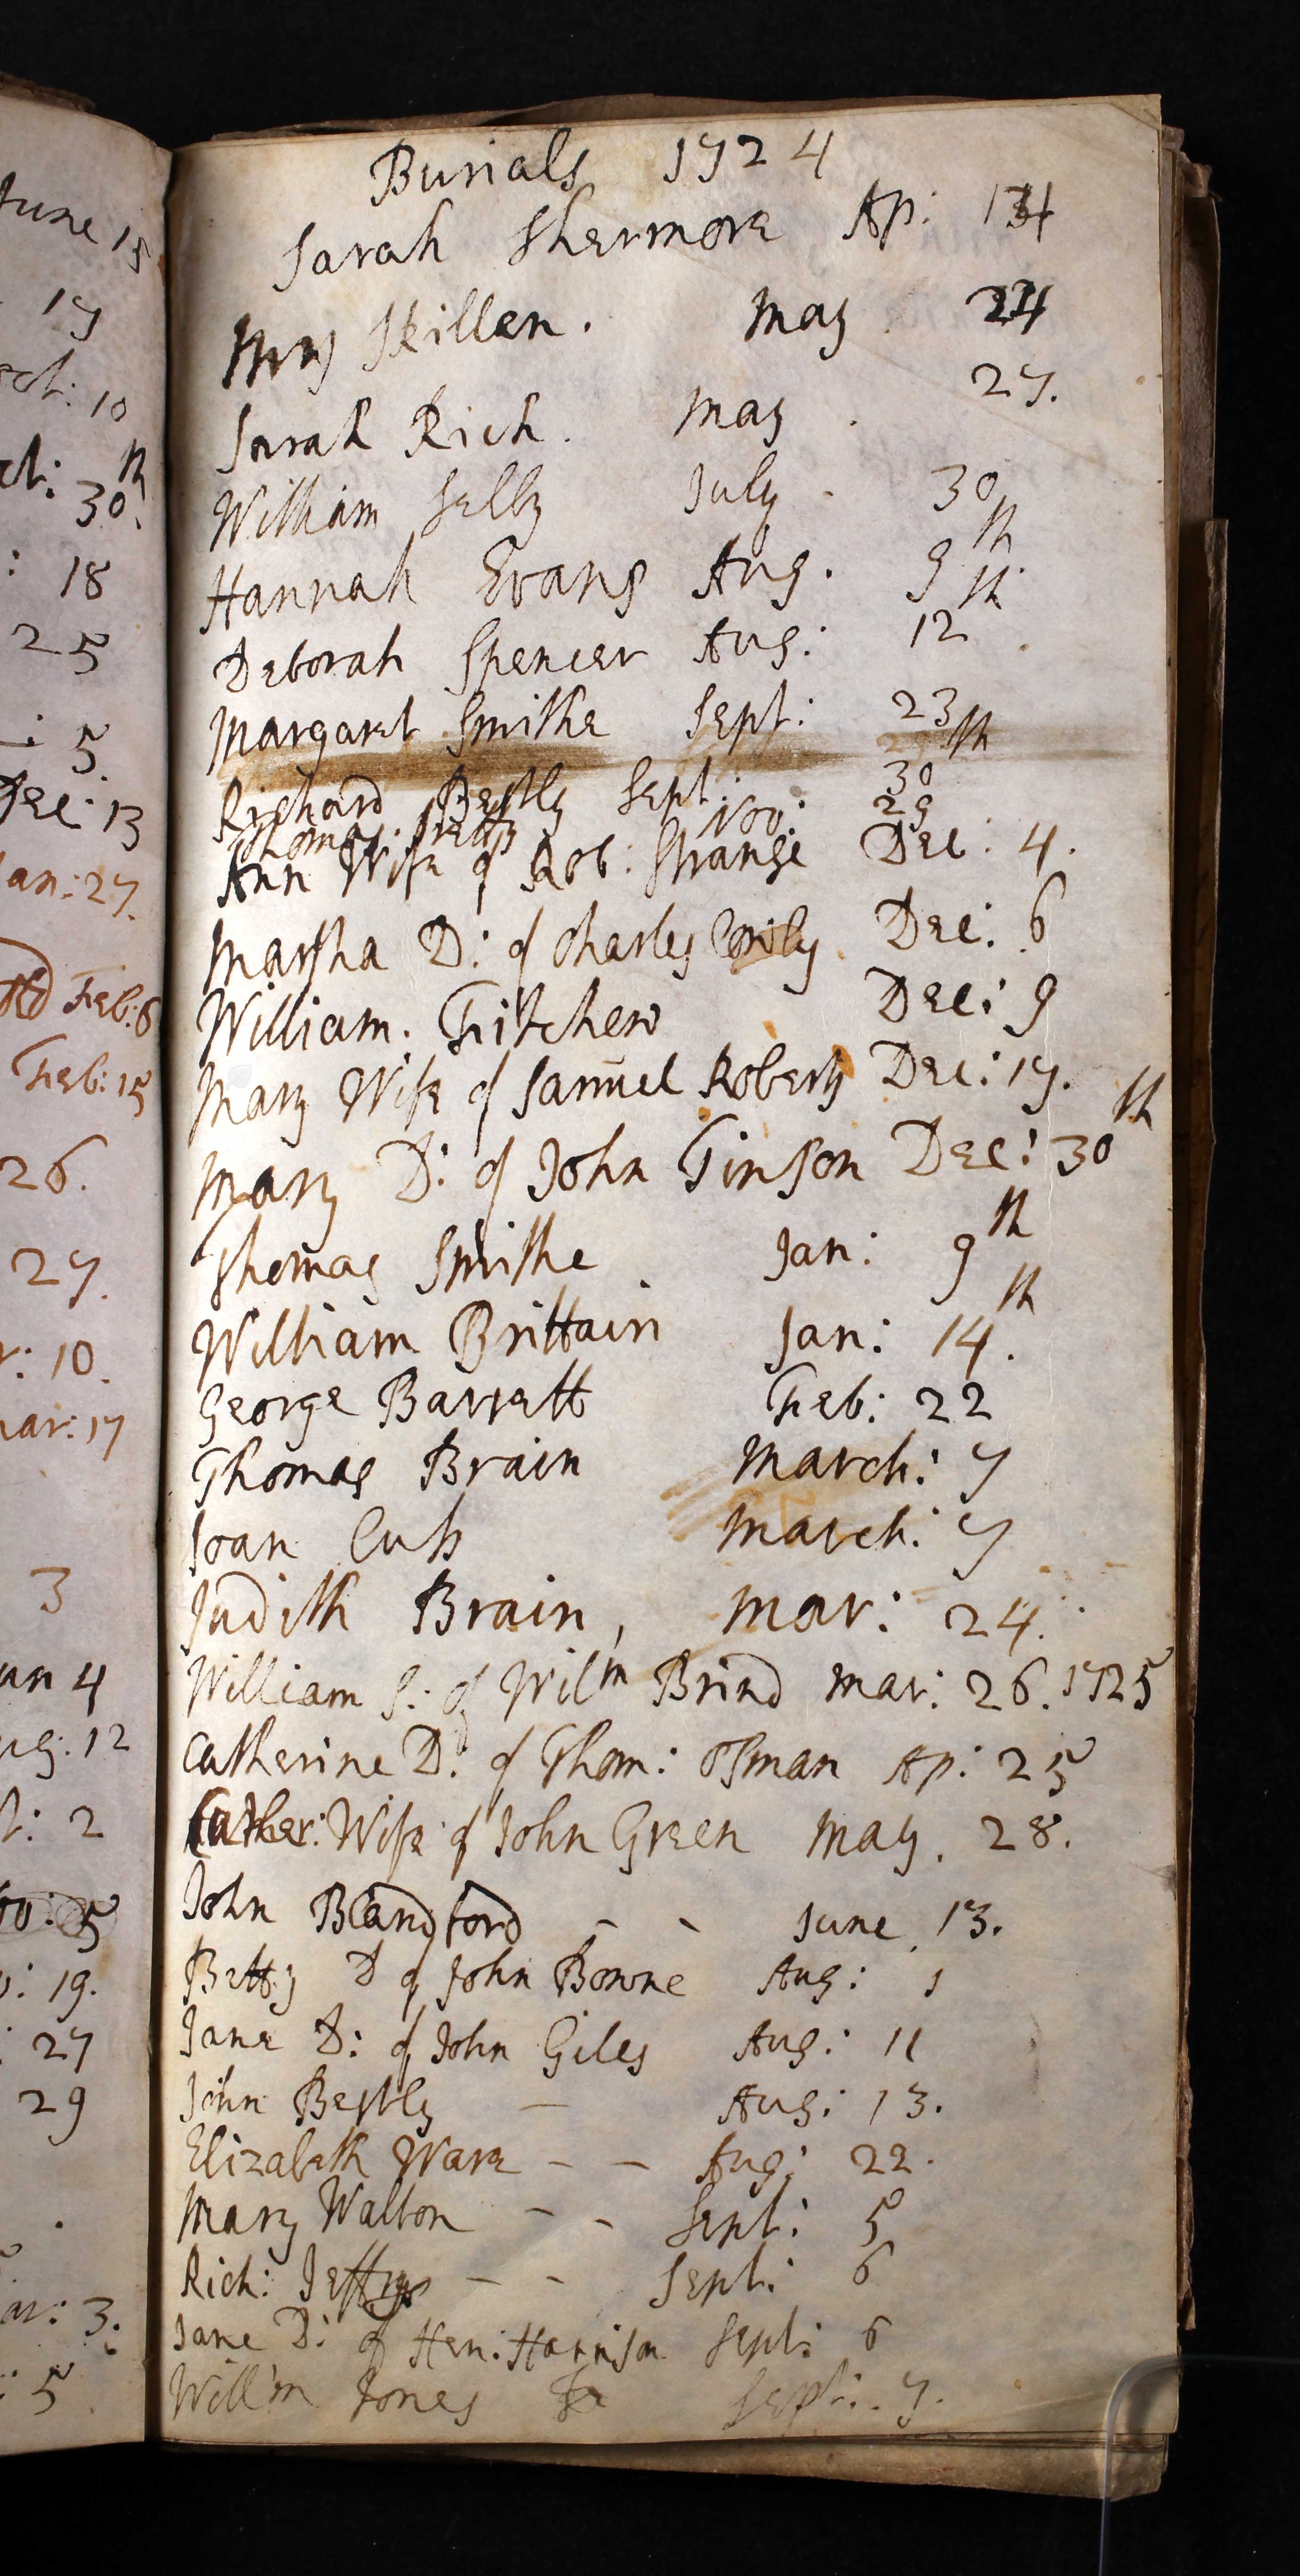 June 15
17
oct: 10
ct: 30th
: 18
25
: 5.
Dec: 13
Jan: 27.
Feb: 6
Feb: 15
26.
27.
r: 10.
Mar: 17
3
un 4
ug: 12
t: 2
5
: 19.
: 27
29
ar: 3.
: 5
Burials 1724
Sarah Shermore Ap:
Skillen . May
Sarah Rich . May . 27.
William Selby July . 30th
Hannah Evans Aug. 9th
Deborah Spencer Aug: 12
Margaret Smithe Sept: 23
Richard Bestly Sept: 30th
Thomas Nov: 29
Ann Wife of Rob: Strange Dec: 4.
Martha D: of Charles Dec: 6
William. Fitchew Dec: 9
Mary Wife of Samuel Roberts Dec: 17.
Mary D: of John Tinson Dec: 30th
Thomas Smithe Jan: 9th
William Brittain Jan: 14th.
George Barrett Feb: 22
Thomas Brain March: 7
Joan Cuss March: 7
Judith Brain, Mar: 24.
William S: of Wilm Brind Mar: 26. 1725
Catherine D: of Thom: Osman Ap: 25
Wife of John Green May. 28.
John Blandford - - June. 13.
Betty D of John Bowne Aug: 1
Jane D: of John Giles Aug: 11
John Bestly - Aug: 13.
Elizabeth Ware - - Aug: 22.
Mary Walton - - Sept: 5
Rich: Jefferys - - Sept: 6
Jane D: of Hen: Harrison Sept: 6
Will'm Jones Sept: . 7.